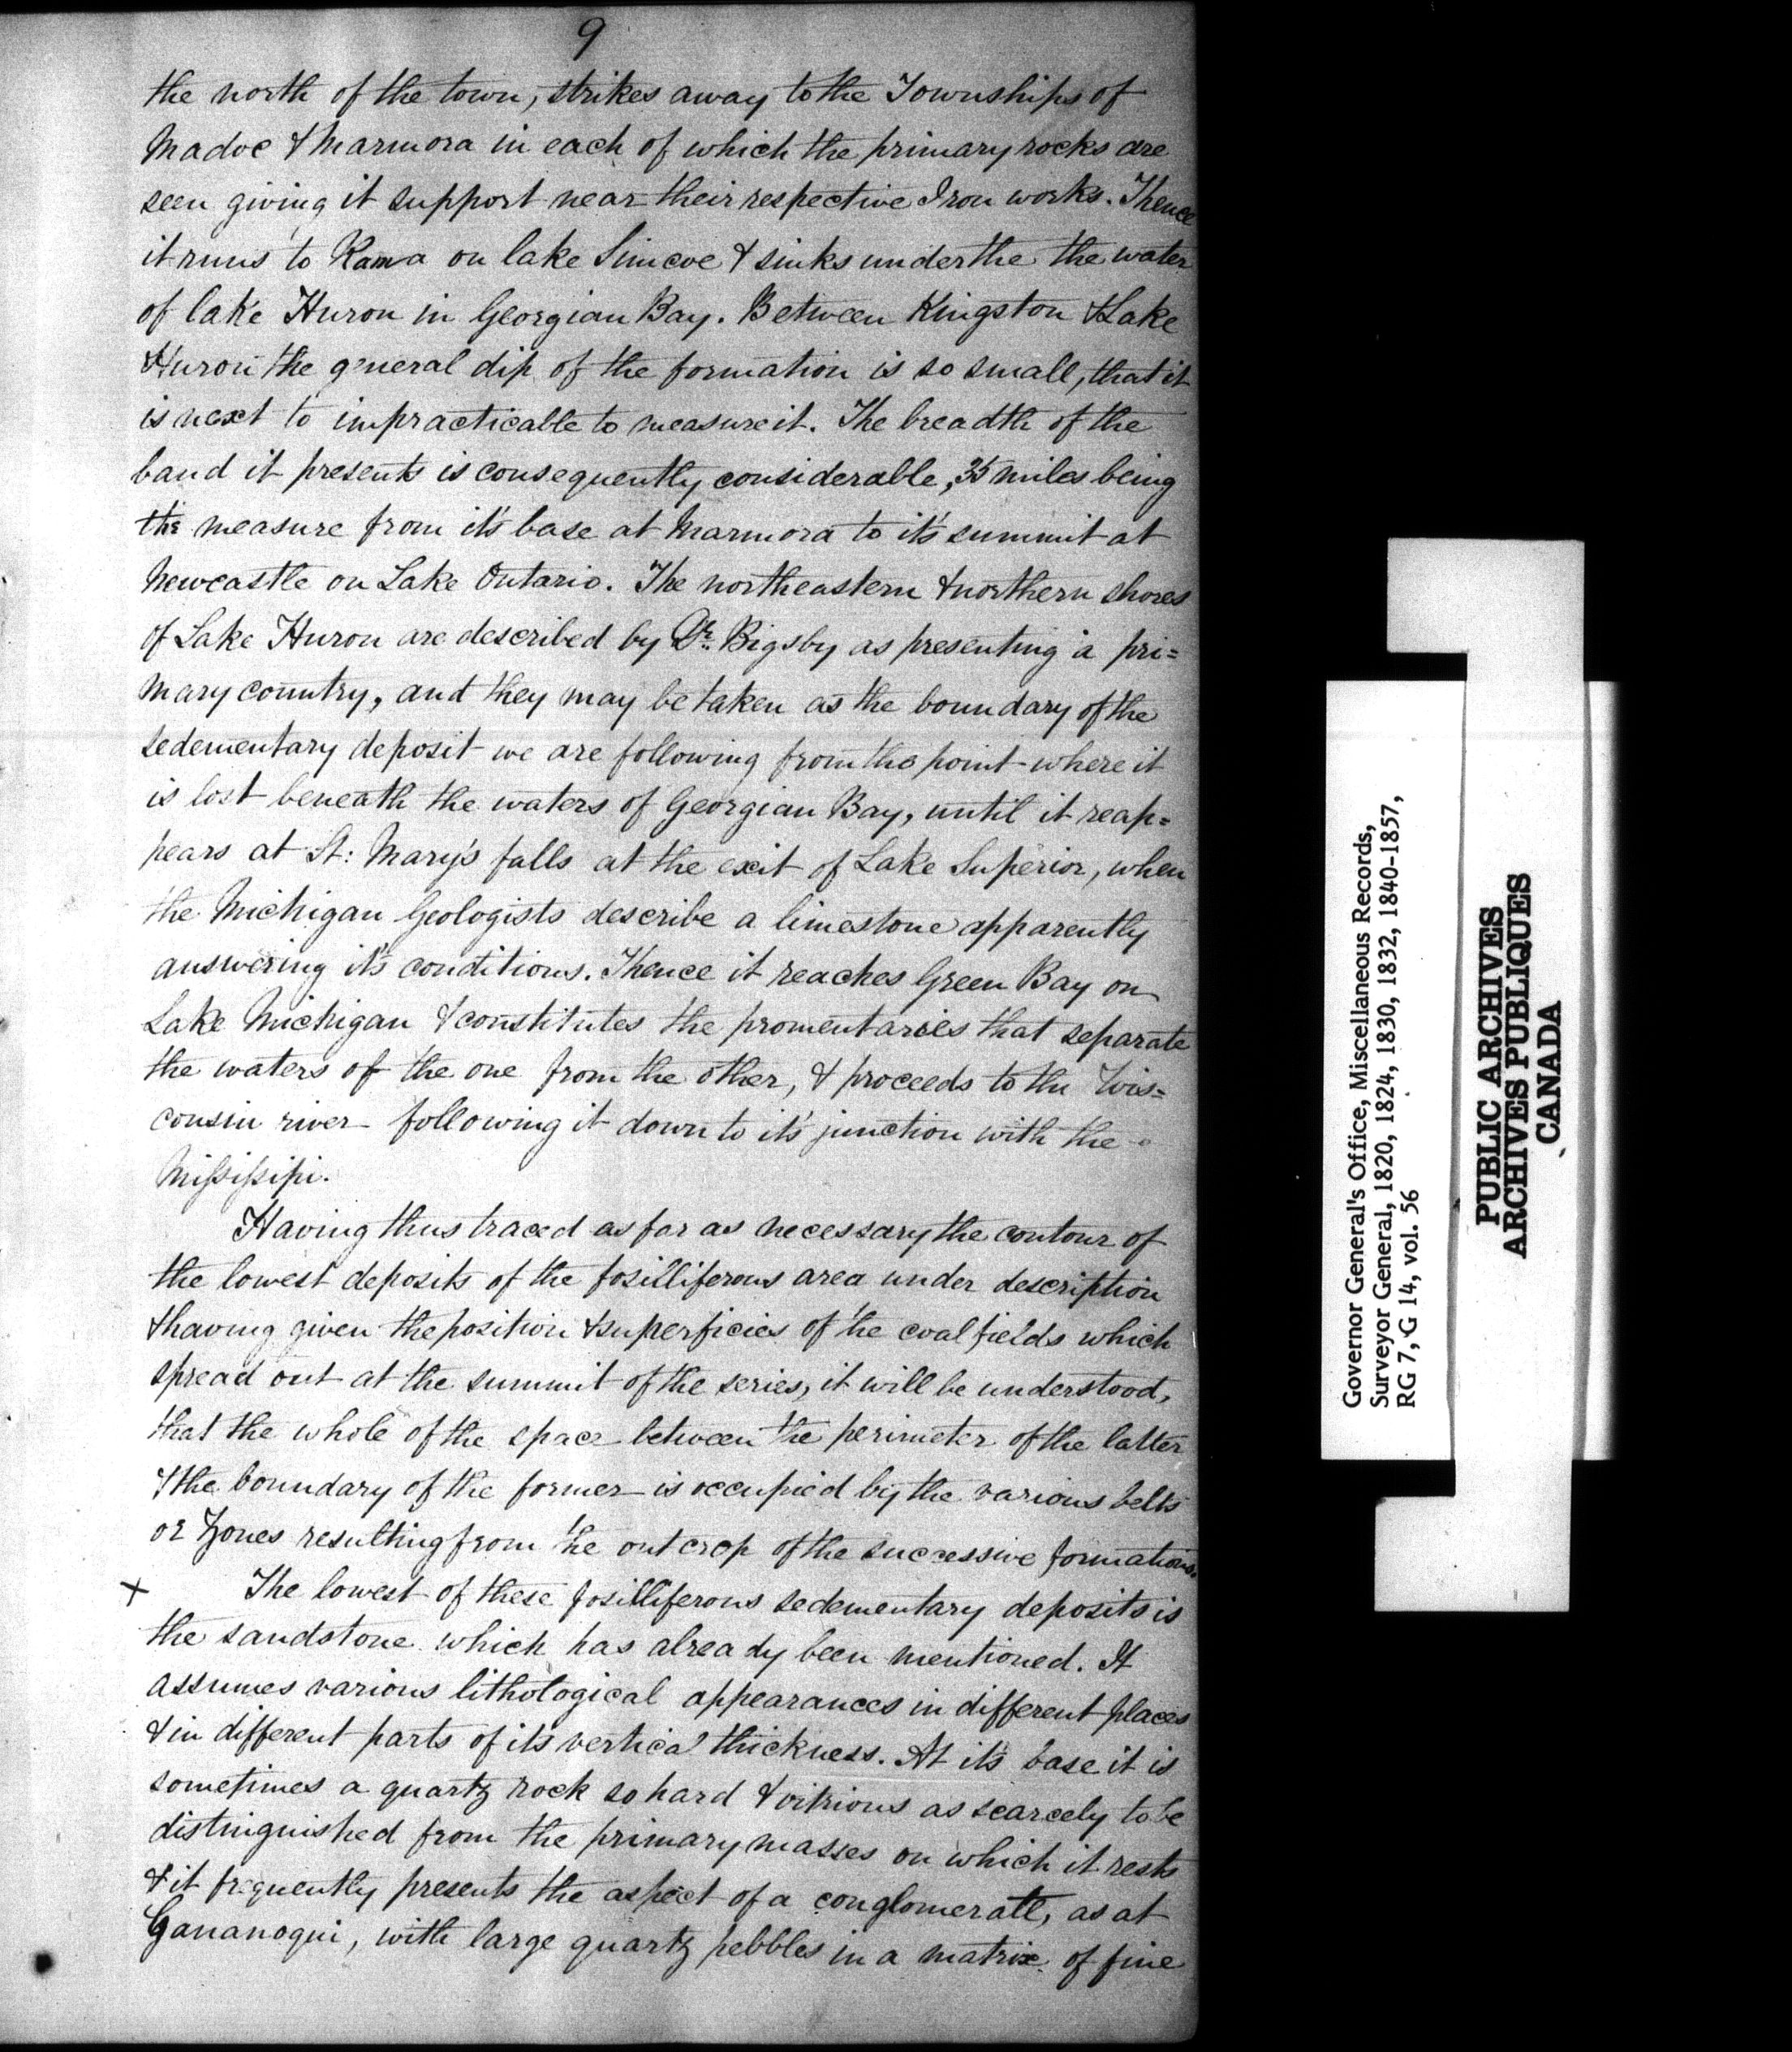 9
the north of the town, strikes away to the Townships of
Madoc & Marmora in each of which the primary rocks are
seen giving it support near their respective Iron works. Thence
it runs to Rama on lake Simcoe & sinks under the the water
of lake Huron in Georgian Bay. Between Kingston & Lake
Huron the general dip of the formation is so small, that it
is next to impracticable to measure it. The breadth of the
band it presents is consequently considerable, 35 miles being
the measure from it's base at Marmora to it's summit at
Newcastle on Lake Ontario. The northeastern & northern shores
of Lake Huron are described by Dr. Bigsby as presenting a pri=
mary country, and they may be taken as the boundary of the
sedementary deposit we are following from the point where it
is lost beneath the waters of Georgian Bay, until it reap=
pears at St: Mary's falls at the exit of Lake Superior, when
the Michigan Geologists describe a limestone apparently
answering it's conditions. Thence it reaches Green Bay on
Lake Michigan & constitutes the promentaries that separate
the waters of the one from the other, & proceeds to the Wis=
consin river following it down to it's junction with the
Mississipi.
Having thus traced as far as necessary the contour of
the lowest deposits of the fosilliferous area under description
& having given the position & superficies of the coal fields which
spread out at the summit of the series, it will be understood,
that the whole of the space between the perimeter of the latter
& the boundary of the former is occupied by the various belts
or Zones resulting from the outcrop of the successive formations.
x The lowest of these fosilliferous sedementary deposits is
the sandstone which has already been mentioned. It
assumes various lithological appearances in different places
& in different parts of it's vertical thickness. At it's base it is
sometimes a quartz rock so hard & vitrious as scarcely to be
distinguished from the primary masses on which it rests
& it frequently presents the aspect of a conglomerate, as at
Gananoqui, with large quartz pebbles in a matrix of fine
Governor General's Office, Miscellaneous Records,
Surveyor General, 1820, 1824, 1830, 1832, 1840-1857,
RG 7, G 14, vol. 56
PUBLIC ARCHIVES
ARCHIVES PUBLIQUES
CANADA